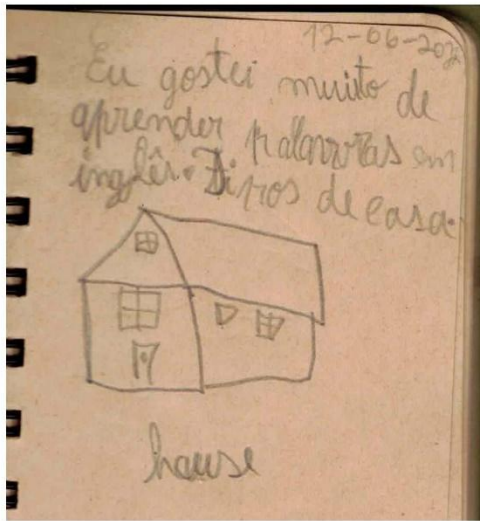 12-06-202
Eu gostei muito de
aprender palavras em
inglês. Tipos de casa.
hause